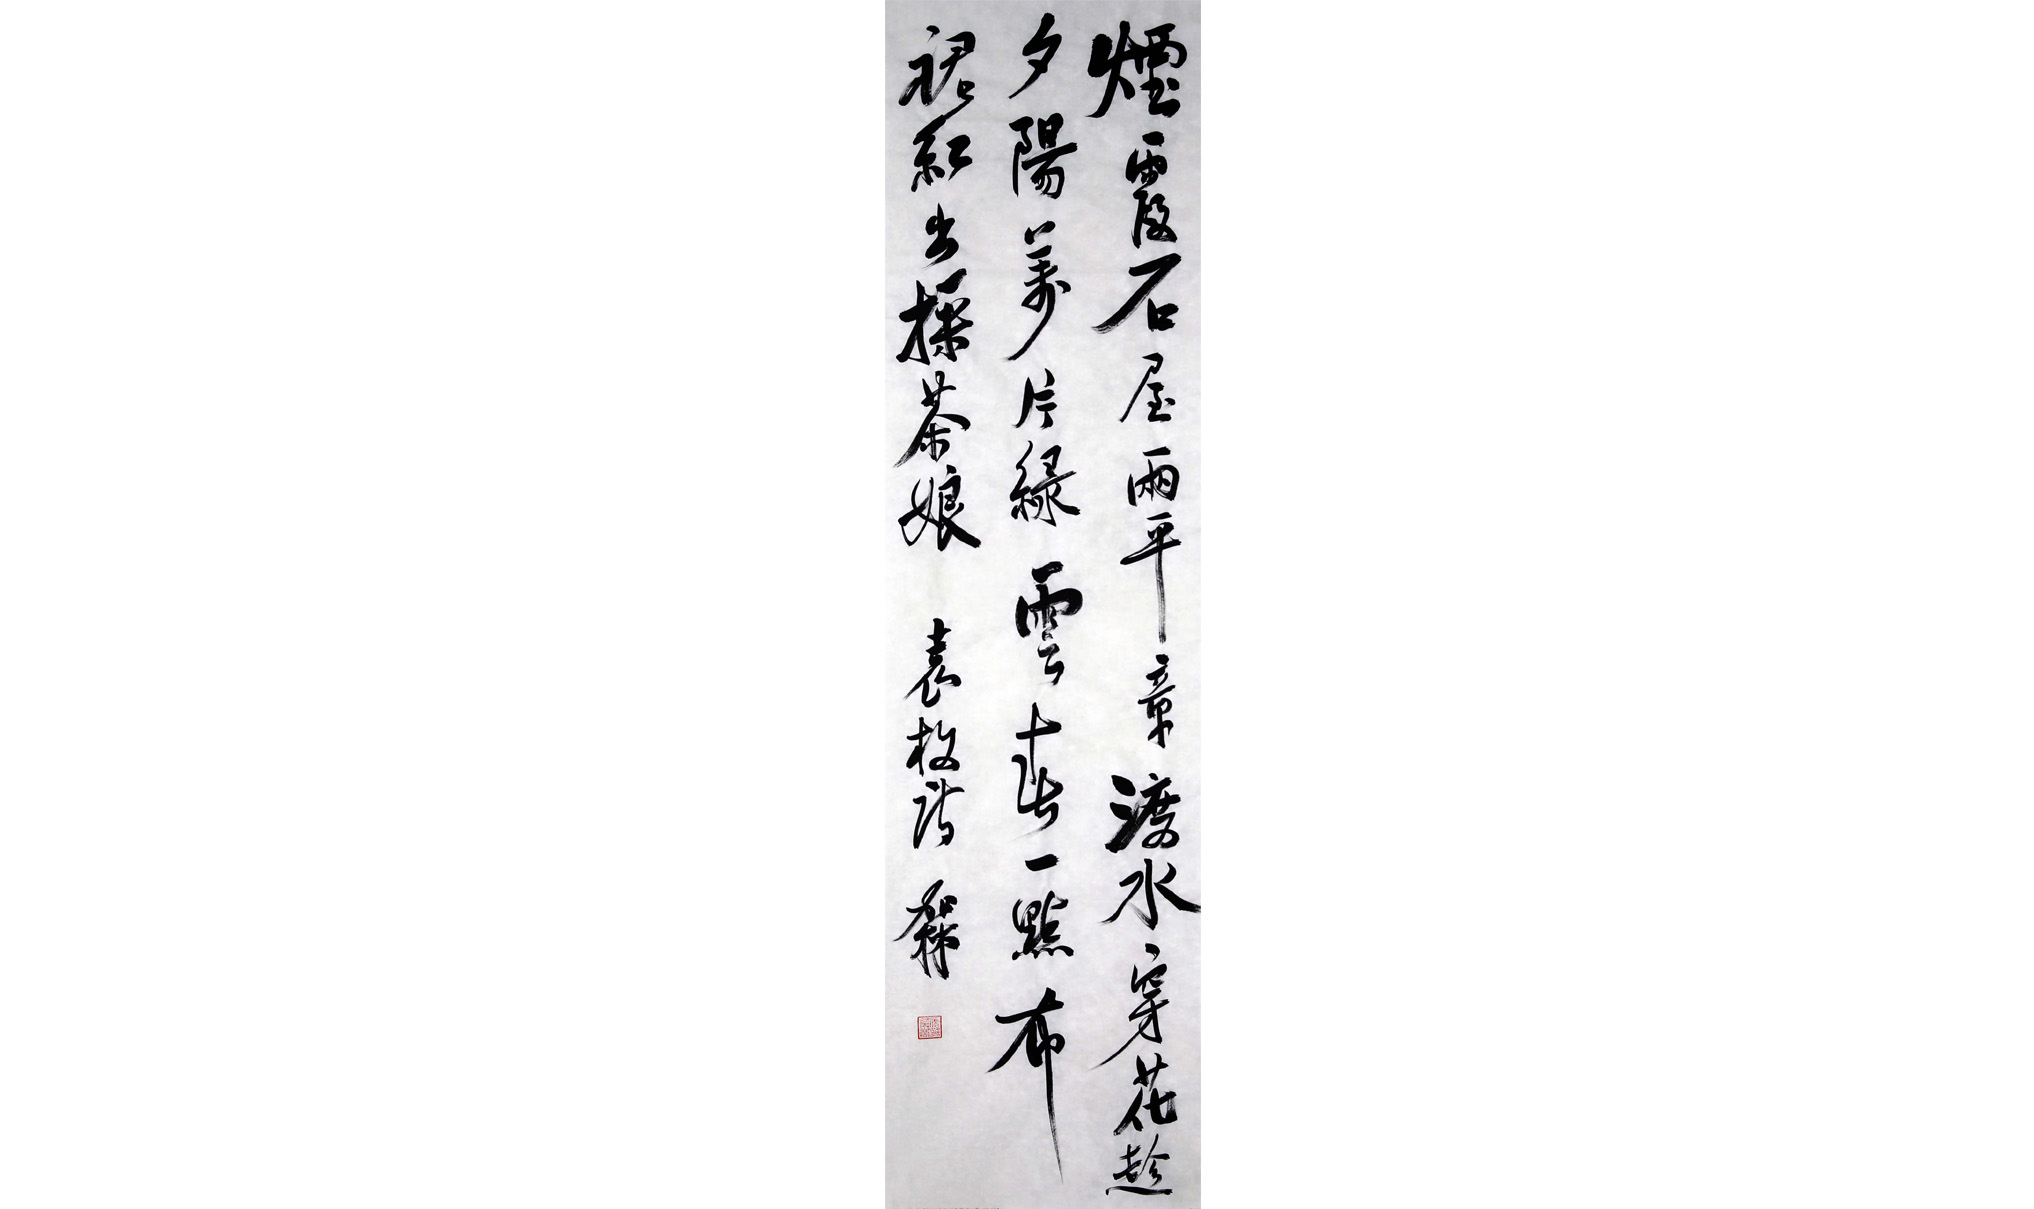 煙霞石屋兩平章渡水穿花趁
夕陽萬片綠雲春一點布
裙紅出採茶娘 袁枚詩